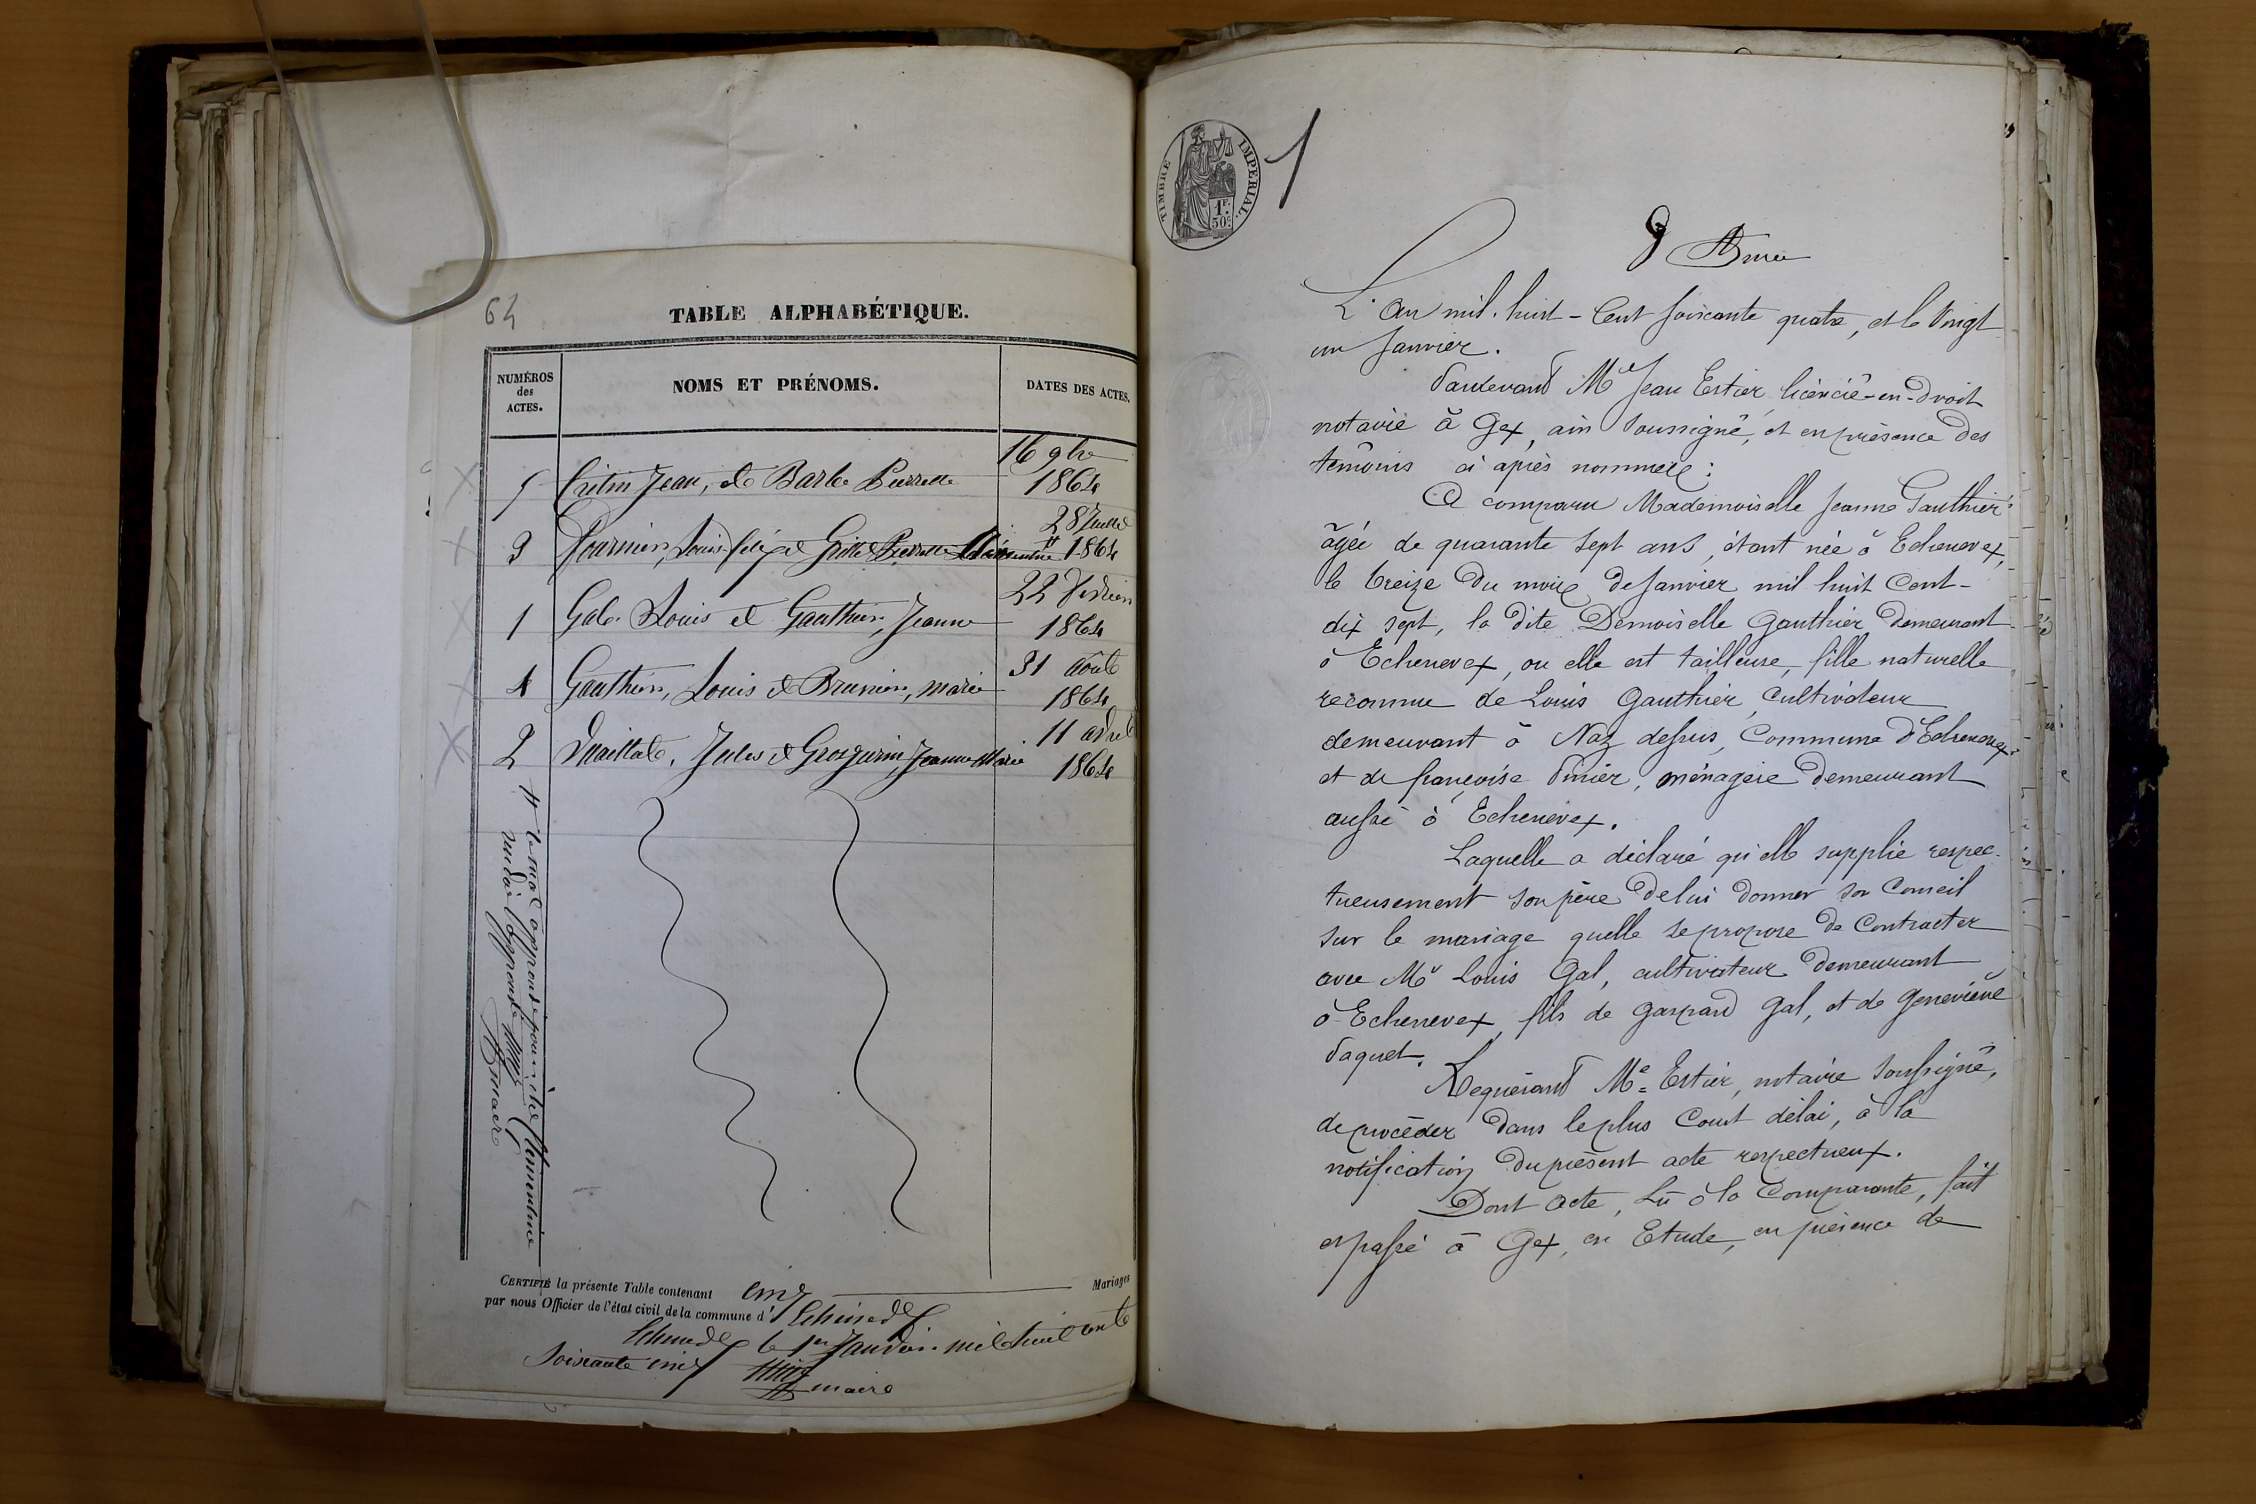 64
TABLE ALPHABÉTIQUE.
NUMÉROS
des
ACTES.
NOMS ET PRÉNOMS.
DATES DES ACTES.
16 9bre
5 Critin Jean, et Barbe Pierrette 1864
28 Juillet
3 Fournier, Louis félix et Grillet Pierrette Clémentine # 1864
22 Février
1 Gal. Louis et Gauthier, Jeanne 1864
31 août
4 Gauthier, Louis et Brunier, marie 1864
11 avril
2 Maillard, Jules et Grosgurin, Jeanne Marie 1864
# le mot approuvé pour être Clémentine
maire
CERTIFIÉ la présente Table contenant cinq Mariages
par nous Officier de l'état civil de la commune d'Echenevex
Echenevex le 1er Janvier mil huit cent
soixante cinq
maire
TIMBRE IMPÉRIAL.
1F.
50c
1
L'an mil. huit-Cent soixante quatre, et le Vingt
un Janvier.
Pardevant Me Jean Estier licencié-en-droit
notaire à Gex, ain soussigné, et en présence des
témoins ci après nommés:
A comparu Mademoiselle Jeanne Gauthier
âgée de quarante sept ans, étant née à Echenevex,
le treize du mois de Janvier mil huit Cent-
dix sept, la dite Demoiselle Gauthier demeurant
à Echenevex, ou elle est tailleuse, fille naturelle
reconnue de Louis Gauthier, Cultivateur
demeurant à Naz dessus, Commune d'Echenevex
et de françoise Pinier, ménagère demeurant
aussi à Echenevex.
Laquelle a déclaré qu'elle supplie respec-
tueusement son père de lui donner son Conseil
sur le mariage quelle se propose de Contracter
avec Mr Louis Gal, cultivateur demeurant
à Echenevex, fils de Gaspard Gal, et de Geneviève
Paquet.
Requérant Me Estier, notaire soussigné,
de procéder dans le plus Court délai, à la
notification du présent acte respectueux.
Dont acte, Lu à la Comparante, fait
et passé à Gex, en Etude, en présence de